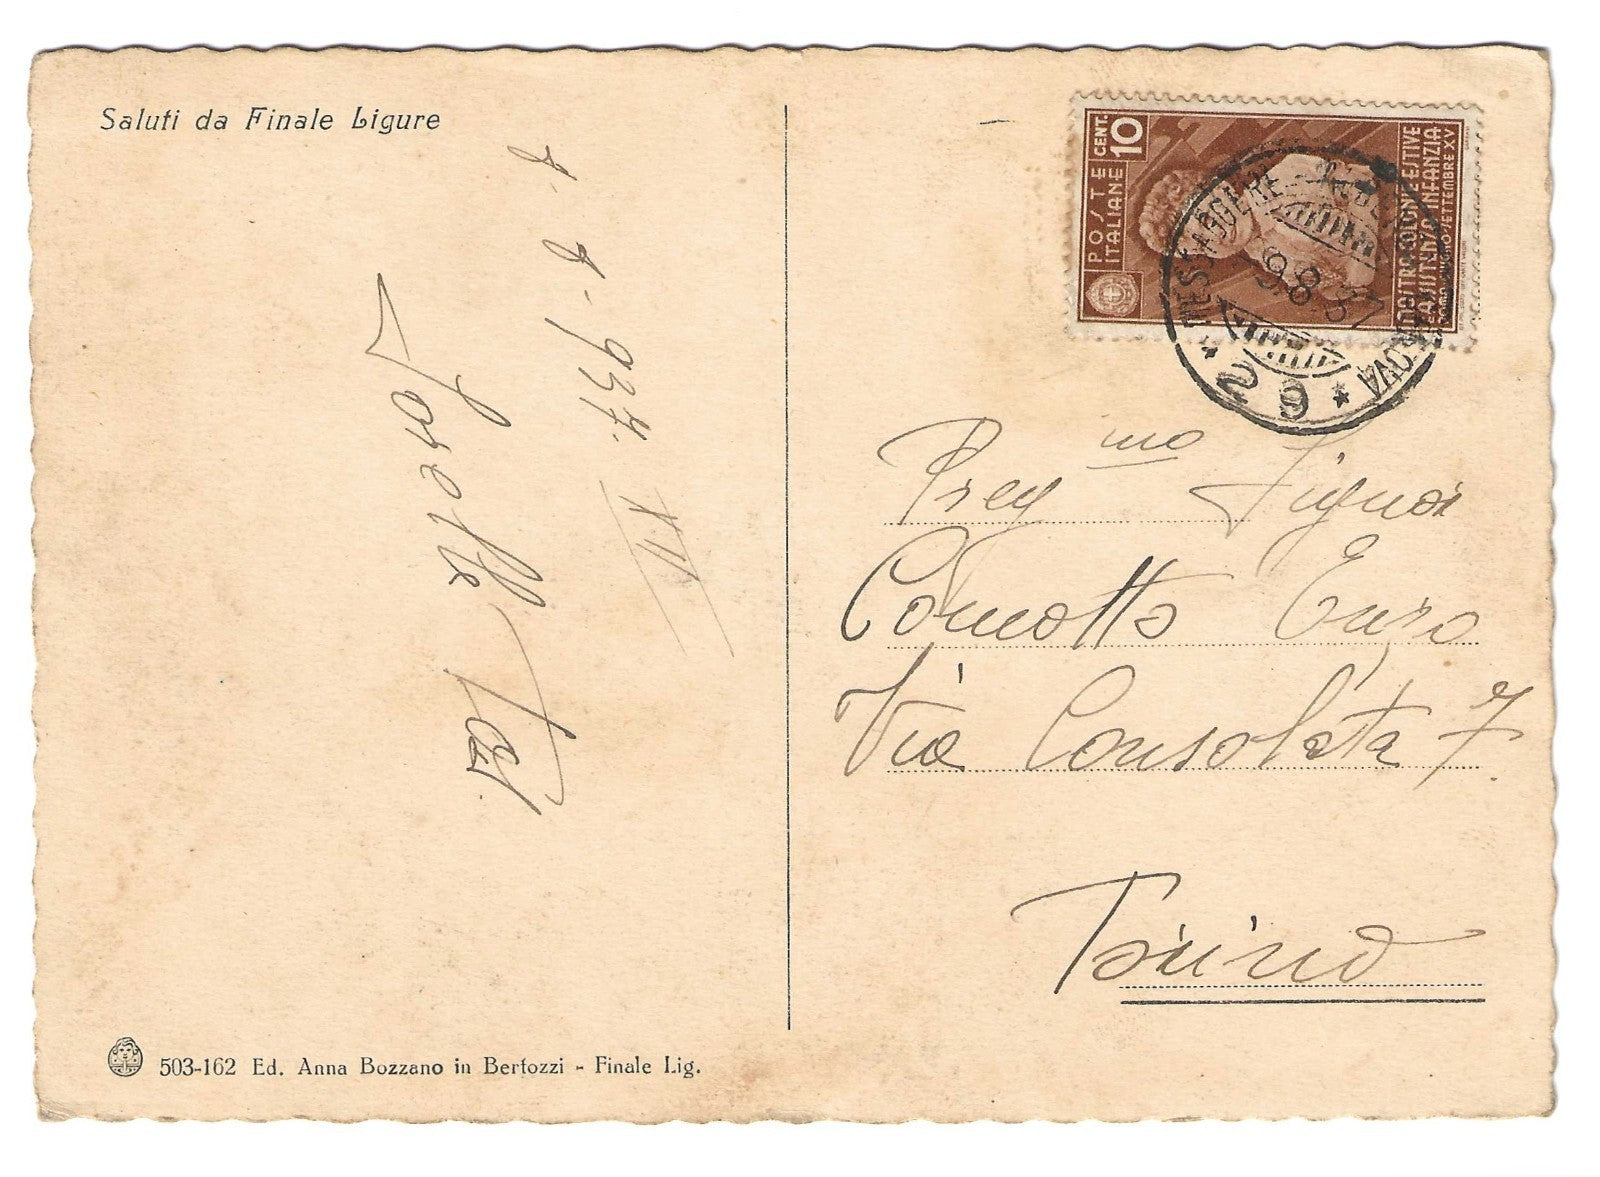 Saluti da Finale Ligure
8-8-937. XV
POSTE ITALIANE
CENT. 10
MOSTRA COLONIE ESTIVE
E ASSISTENZA INFANZIA
SETTEMBRE XV
MESSAGGERE
9.8.37
Preg mo Signor
Comotto Enzo
Via Consolata 7
Torino
503-162 Ed. Anna Bozzano in Bertozzi - Finale Lig.